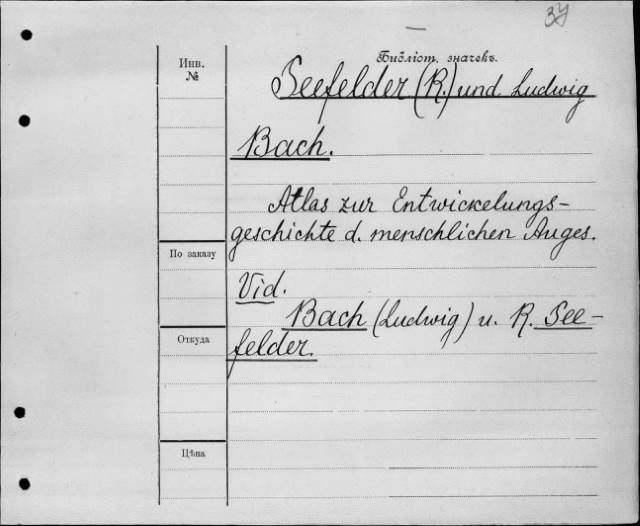 37
Библіот. значекъ.
Инв.
№
Seefelder (R.) und Ludwig
Bach.
Atlas zur Entwickelungs-
geschichte d. menschlichen Auges.
По заказу
Vid.
Bach (Ludwig) u. R. See-
felder.
Откуда
Цѣна